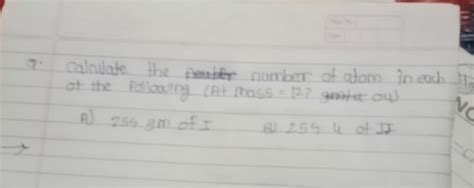 Page No.
Date
9. Calculate the number of atom in each
of the following (At mass = 127 ou)
A) 254 gm of I B) 254 u of II